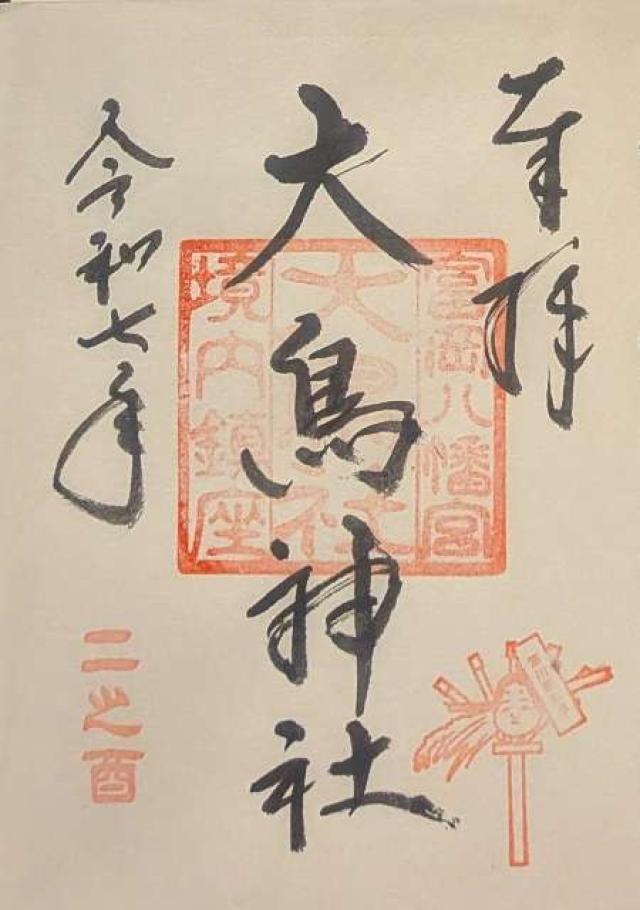 奉拝
大鳥神社
富岡八幡宮
大鳥神社
境内鎮座
令和七年
二之酉